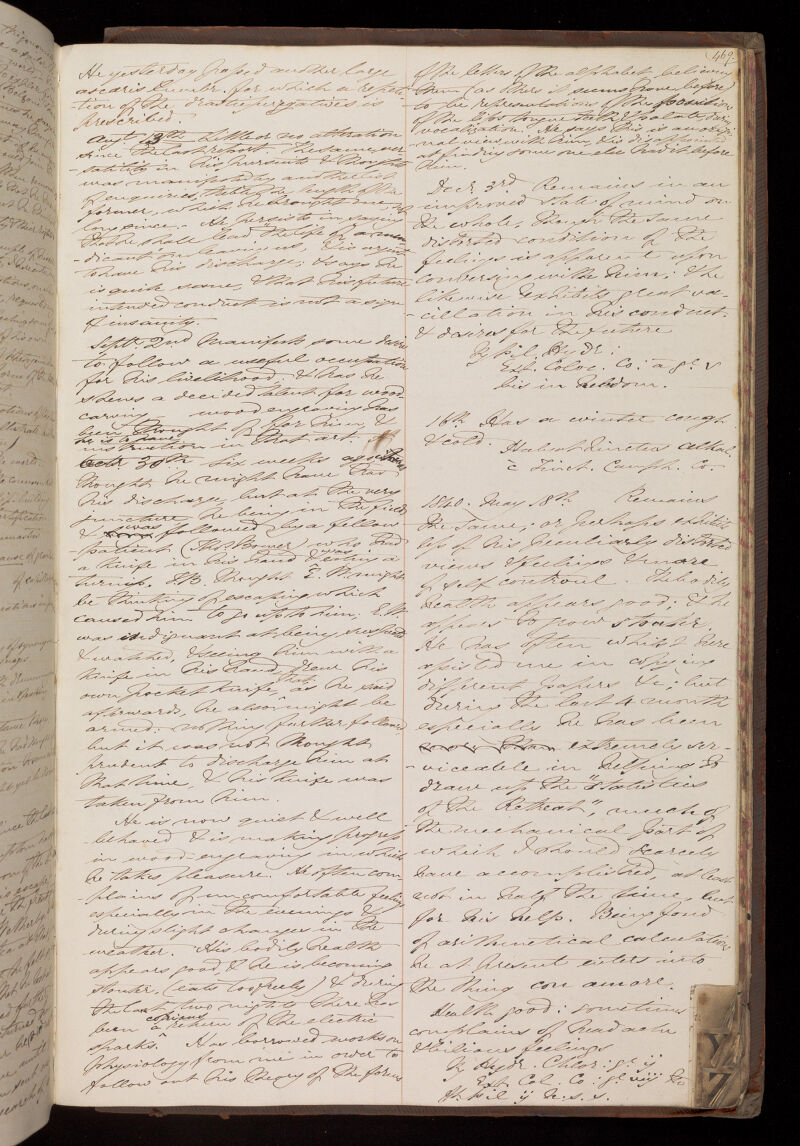 469.
He yesterday passed another large
ascaris lumbr. for which a repeti-
tion of the drastic purgatives is
prescribed.
Augt. 13th Little or no alteration
since the last report. The same ver-
satility in his pursuits & thoughts
was manifested by another list
of enquiries, the length of the
former, which he brought me
long since. He persists in saying
that he shall lead the life of a men-
dicant on leaving us, & is urgent
to have his discharge; & says he
is quite sane, & that his future
intended conduct is not a sign
of insanity.
Septr. 2nd Manifests some desire
to follow a useful occupation
for his livelihood & has he
shews a decided talent for wood
carving wood engraving has
been thought of for him &
he is to have
instruction in that art.
Octr. 30th Six weeks ago it was
thought he might have had
his discharge, but at the very
juncture, he being in the field
& was followed by a fellow
patient (Thos. Bower) who had
a knife in his hand & was eating a
turnip, T.B. thought E.W. might
be thinking of escaping which
caused him to go up to him; E.W.
was indignant at being suspected
& watched, & seeing him with a
knife in his hand, drew his
own pocket knife, that as he said
afterwards, he also might be
armed. Nothing further followed
but it was not thought
prudent to discharge him at
that time, & his knife was
taken from him.
He is now quiet & well
behaved & is making progress
in wood-engraving in which
he takes pleasure. He often com-
plains of uncomfortable feelings
especially in the evenings &
during slight changes in the
weather. His bodily health
appears good, & he is becoming
stouter, (eats too freely) & during
the last two nights there has
been a copious return of the electric
sparks. Has borrowed works on
physiology from me in order to
follow out his theory of the forms
of the letters of the alphabet believing
them (as there it seems have before)
to be representations of the position
of the lips tongue teeth & palate during
vocalization. He says this is an origi-
nal view with him, & is disappointed
at finding some one else had it before
him.
Decr. 3rd Remains in an
improved state of mind on
the whole, though the same
distorted condition of the
feelings is apparent upon
conversing with him; & he
likewise exhibits great va-
cillation in his conduct
& desires for the future
Pil. Hydr:
Ext. Coloc. Co: a gr. v
bis in hebdom.
16th Has a winter cough
& cold. Habeat Linctus alkal.
c Tinct. Camph. Co.
1840. May 18th Remains
the same; or perhaps exhibits
less of his peculiarly distorted
views & feelings & more
of self controul. The bodily
health appears good; & he
appears to grow stouter.
He has often whilst here
assisted me in copying
different papers &c; but
during the last 4 months
especially he has been
extremely ser-
viceable in helping to
draw up the "Statistics
of the Retreat", much of
the mechanical part of
which I should scarcely
have accomplished, at least
not in half the time, but
for his help. Being fond
of arithmetical calculations
he at present enters into
the thing con amore.
Health good: sometimes
complains of headache
& bilious feelings
Hydr. Chlor: gr. ij
Ext. Col. Co: gr. viij
Ft. pil ij h.s.s.
Y
Z